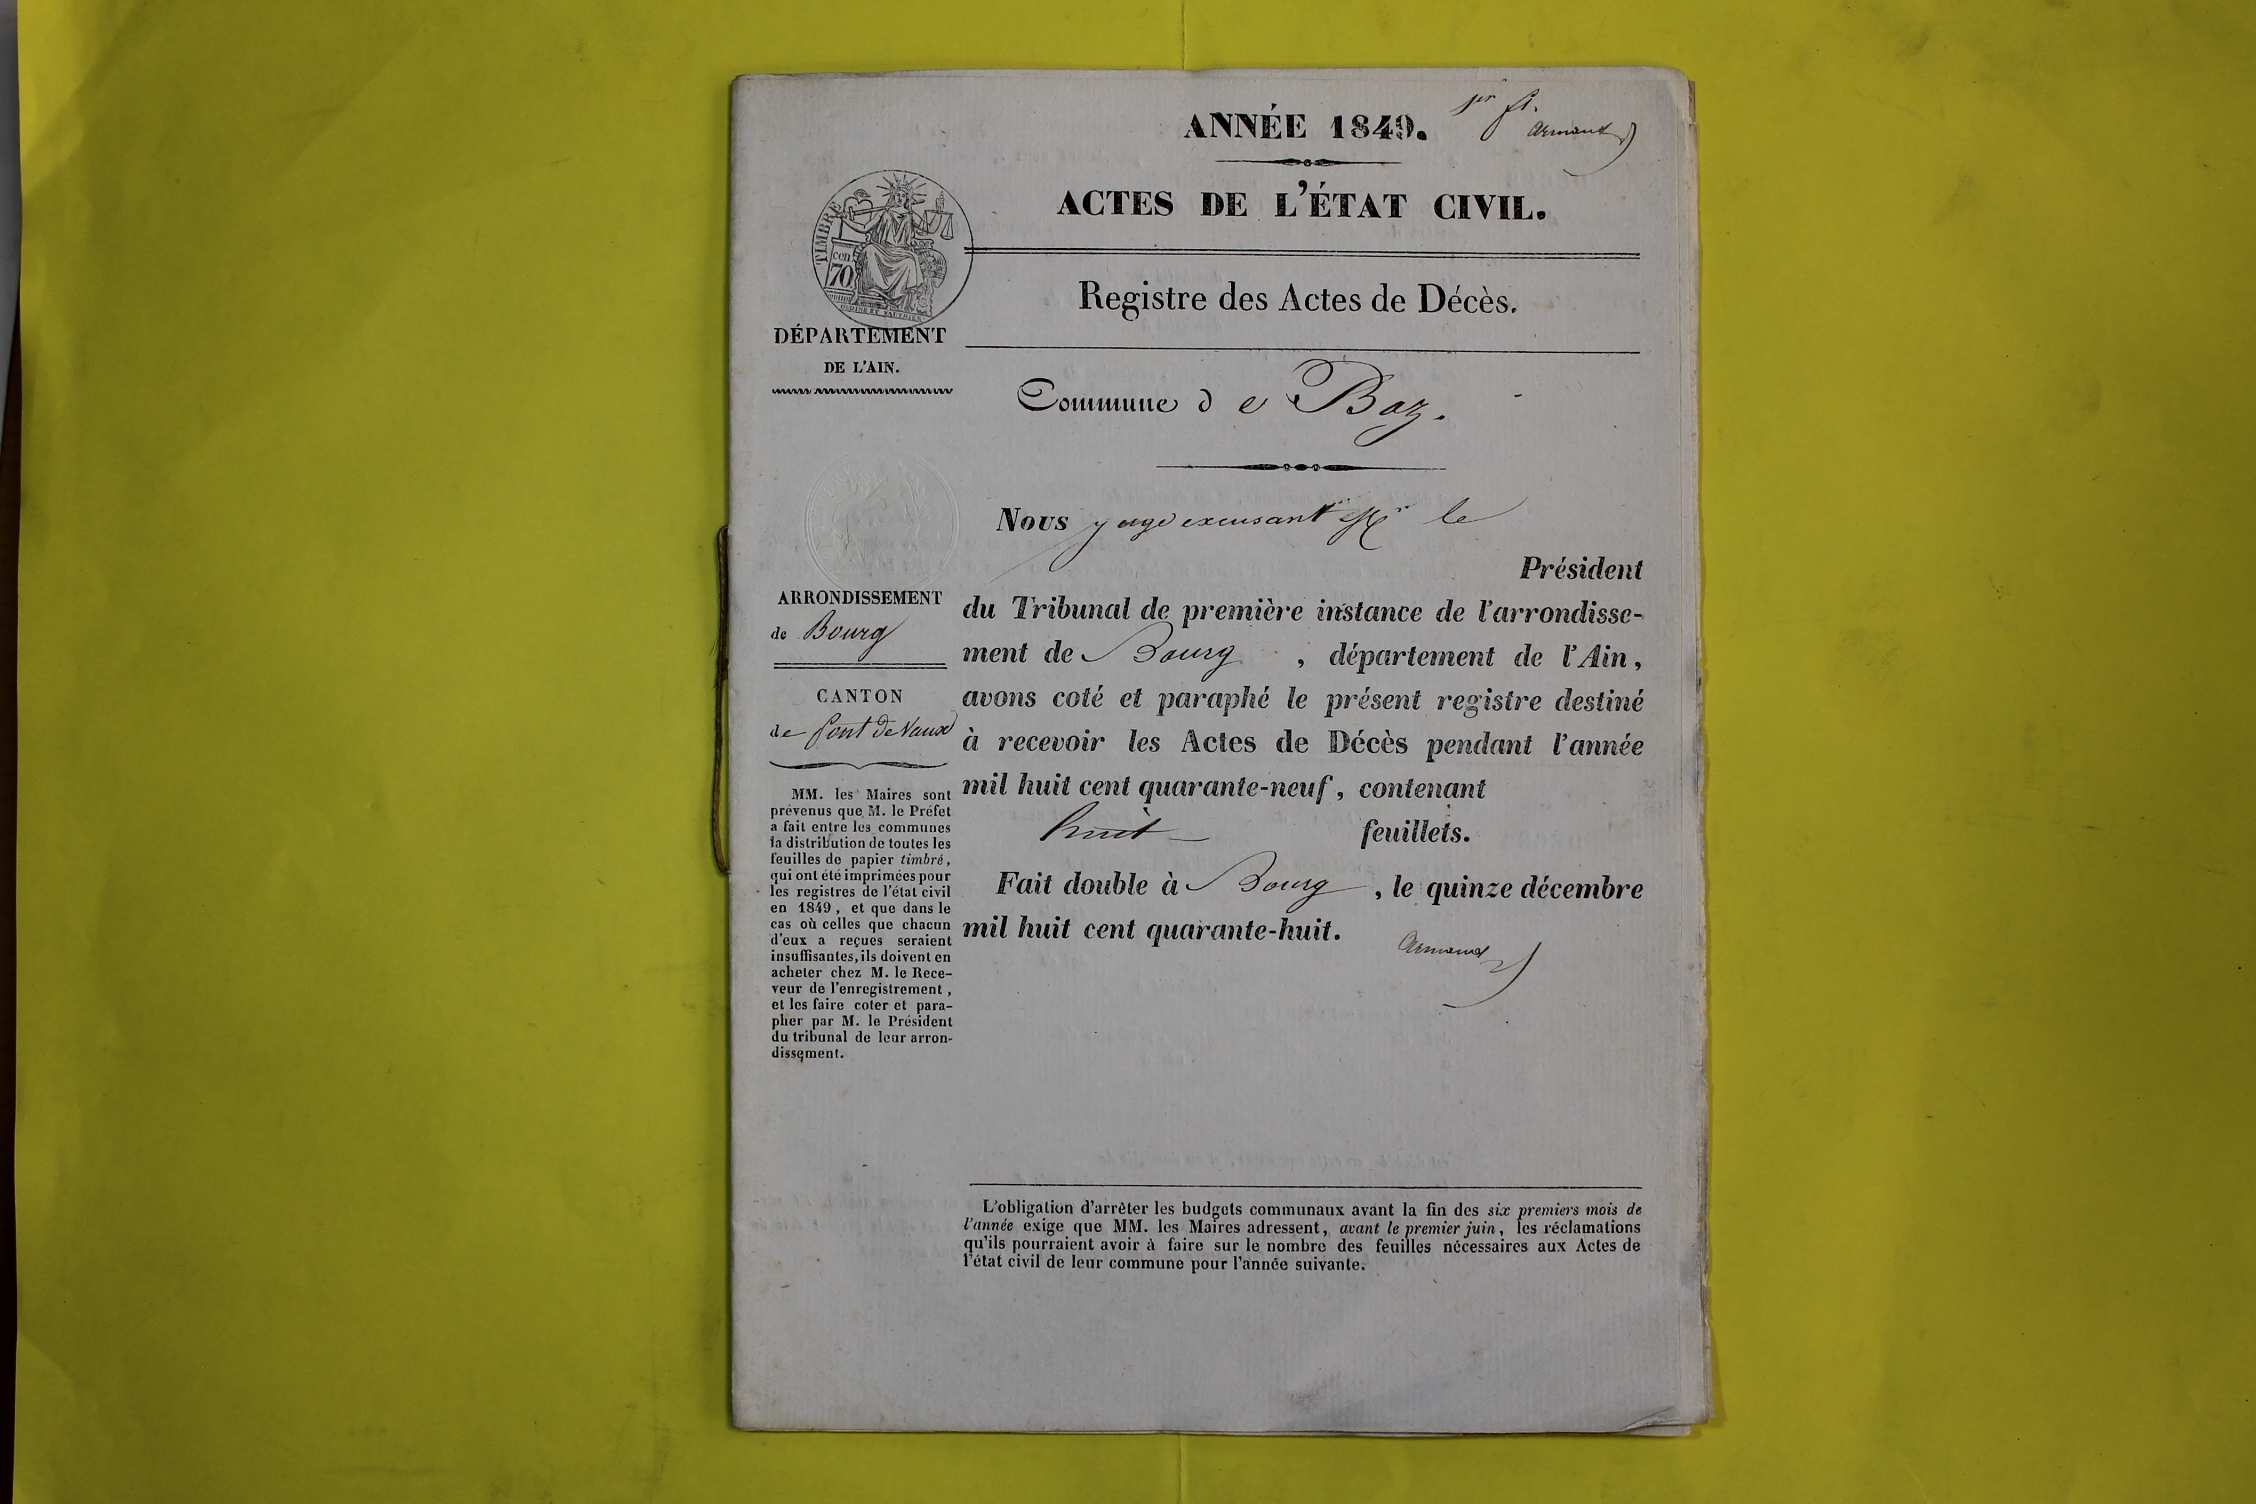 1er ft.
Armand
ANNÉE 1849.
ACTES DE L'ÉTAT CIVIL.
TIMBRE
cen
70
Registre des Actes de Décès.
DÉPARTEMENT
DE L'AIN.
Commune de Boz.
Nous juge excusant Mr le
Président
du Tribunal de première instance de l'arrondisse-
ment de Bourg, département de l'Ain,
avons coté et paraphé le présent registre destiné
à recevoir les Actes de Décès pendant l'année
mil huit cent quarante-neuf, contenant
huit feuillets.
Fait double à Bourg, le quinze décembre
mil huit cent quarante-huit.
Armand
ARRONDISSEMENT
de Bourg
CANTON
de Pont de Vaux
MM. les Maires sont
prévenus que M. le Préfet
a fait entre les communes
la distribution de toutes les
feuilles de papier timbré,
qui ont été imprimées pour
les registres de l'état civil
en 1849, et que dans le
cas où celles que chacun
d'eux a reçues seraient
insuffisantes, ils doivent en
acheter chez M. le Rece-
veur de l'enregistrement,
et les faire coter et para-
pher par M. le Président
du tribunal de leur arron-
dissement.
L'obligation d'arrêter les budgets communaux avant la fin des six premiers mois de
l'année exige que MM. les Maires adressent, avant le premier juin, les réclamations
qu'ils pourraient avoir à faire sur le nombre des feuilles nécessaires aux Actes de
l'état civil de leur commune pour l'année suivante.